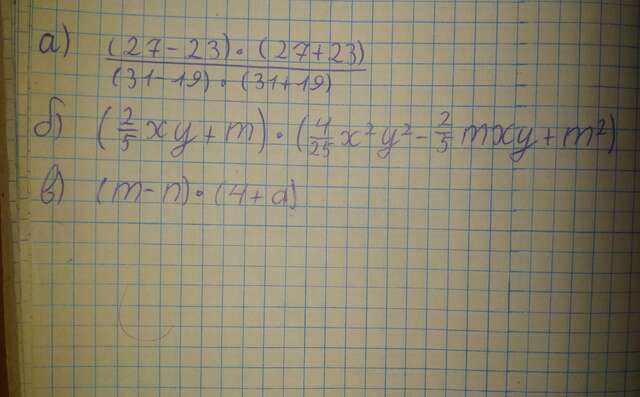 а) (27-23)·(27+23)
(31-19)·(31+19)
б) (2/5 xy + m)·(4/25 x²y² - 2/5 mxy + m²)
в) (m-n)·(4+a)